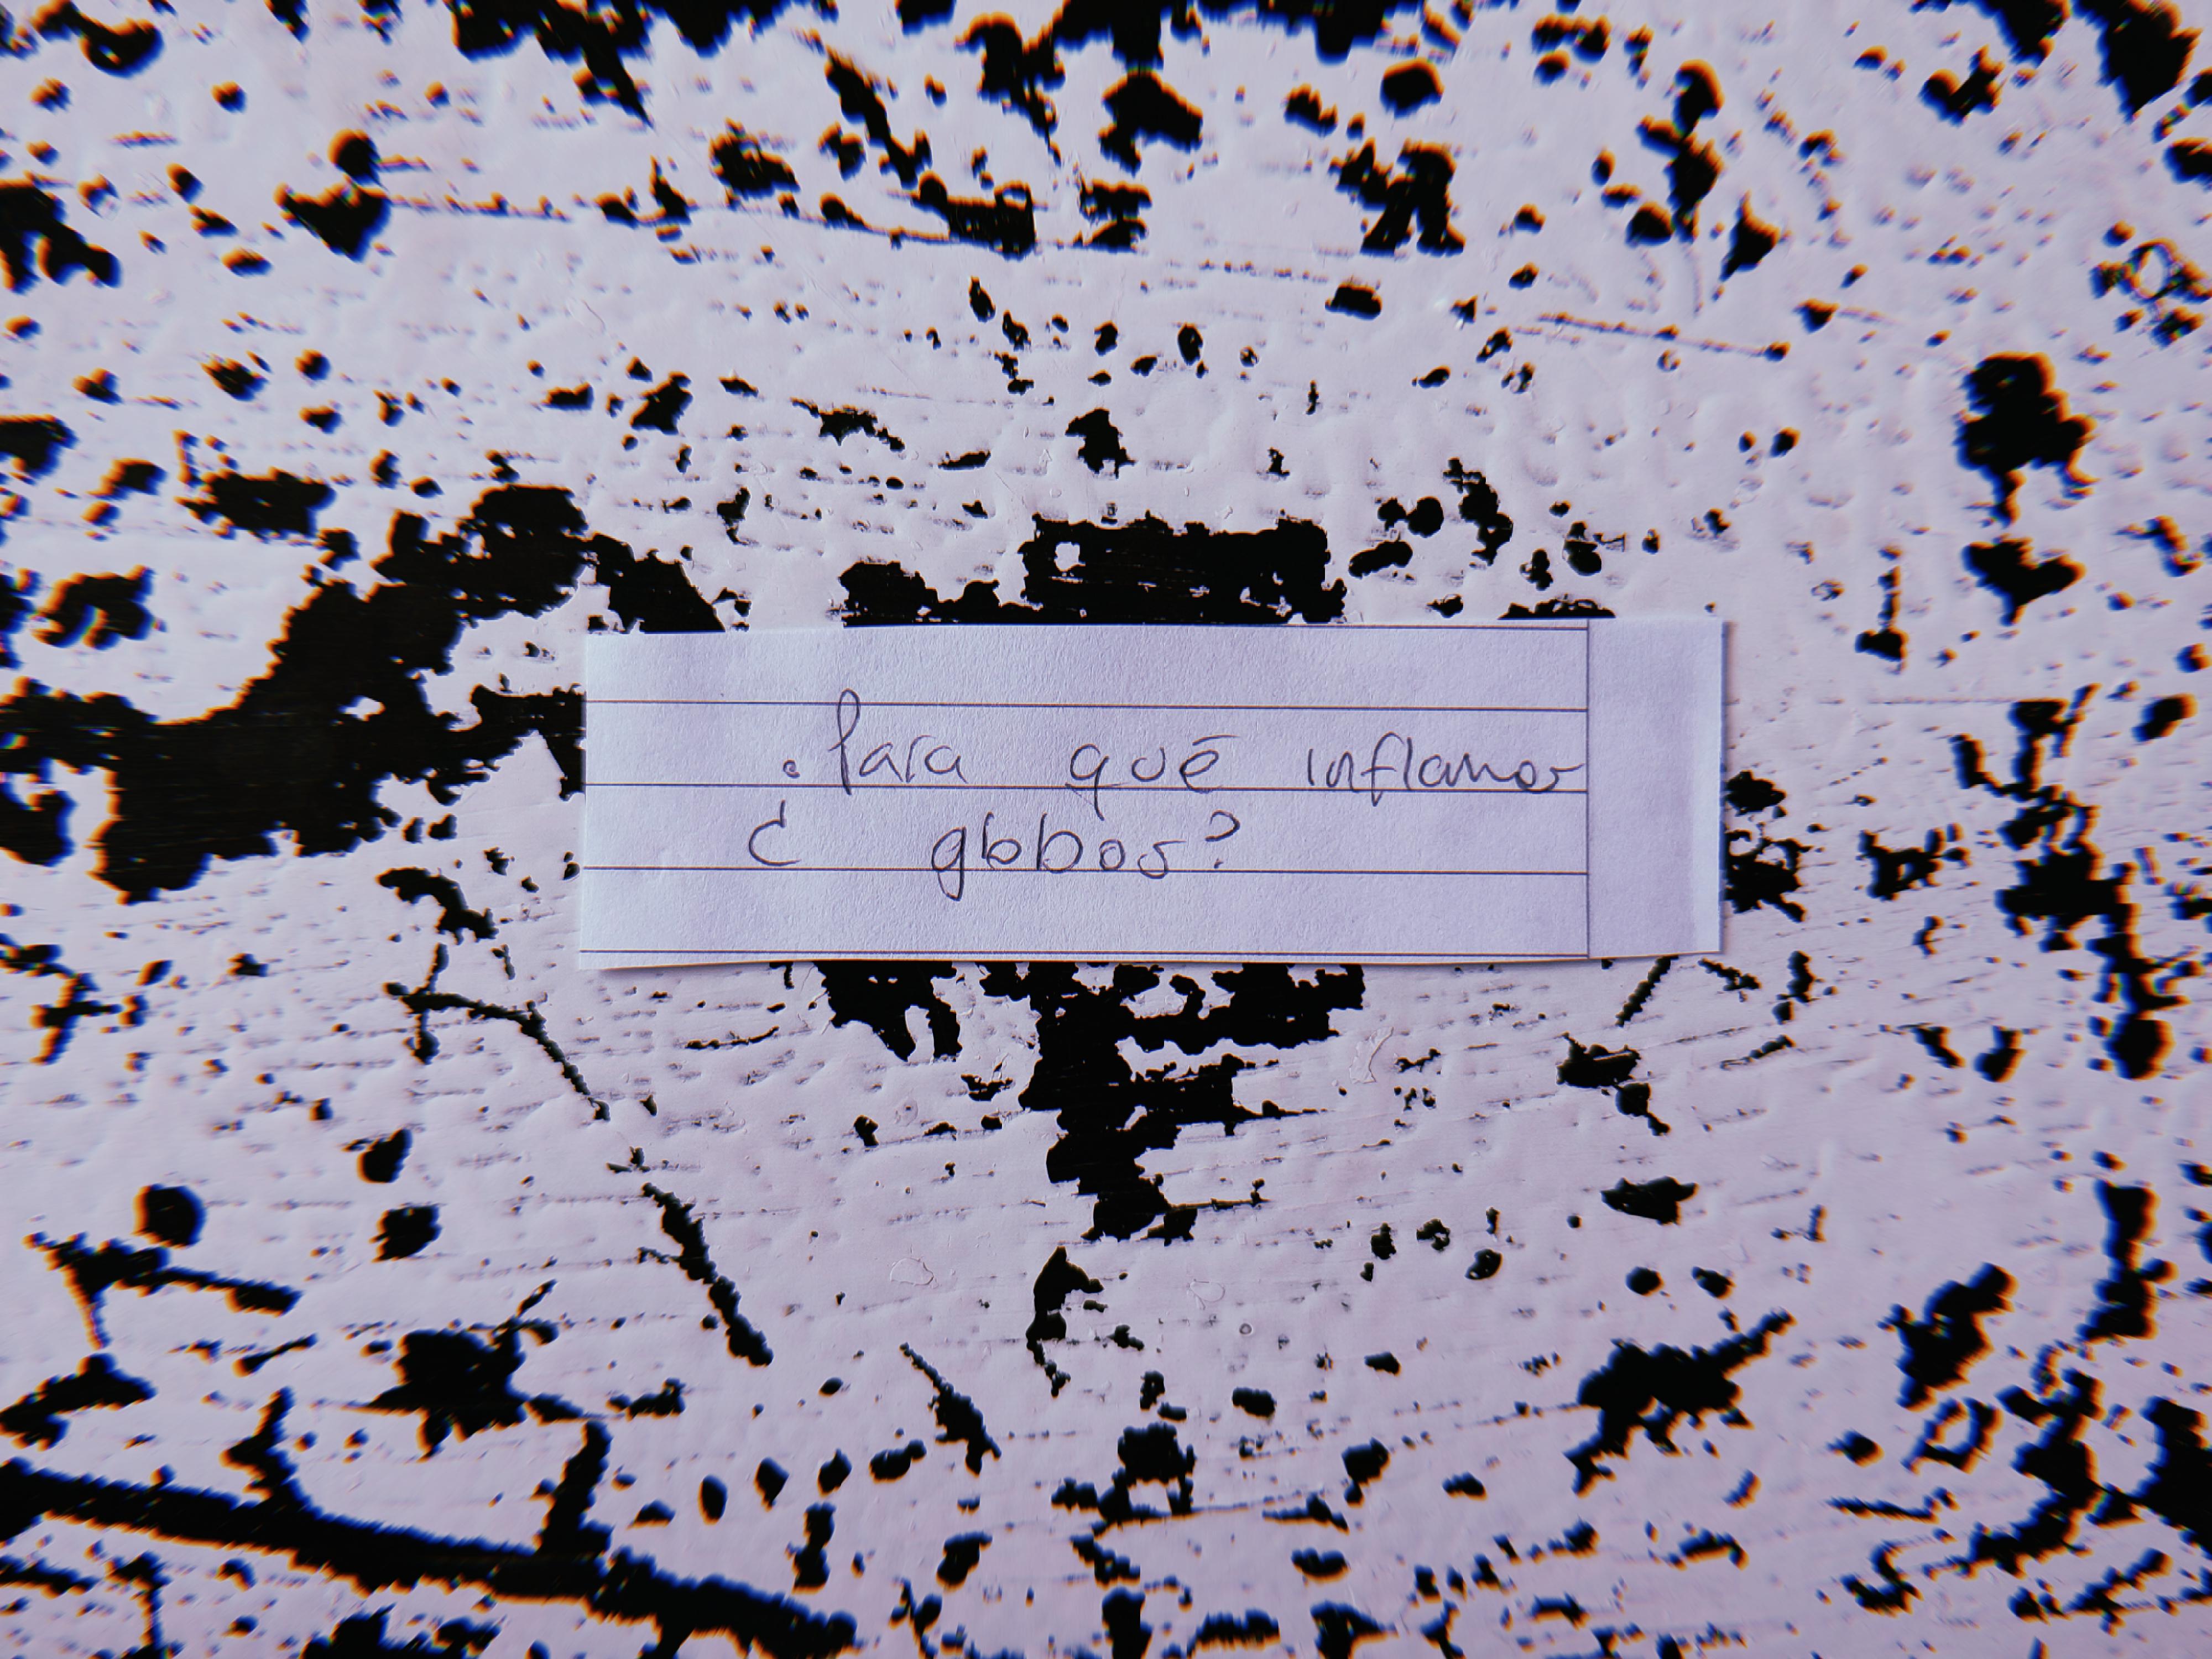 ¿Para qué inflamos
globos?